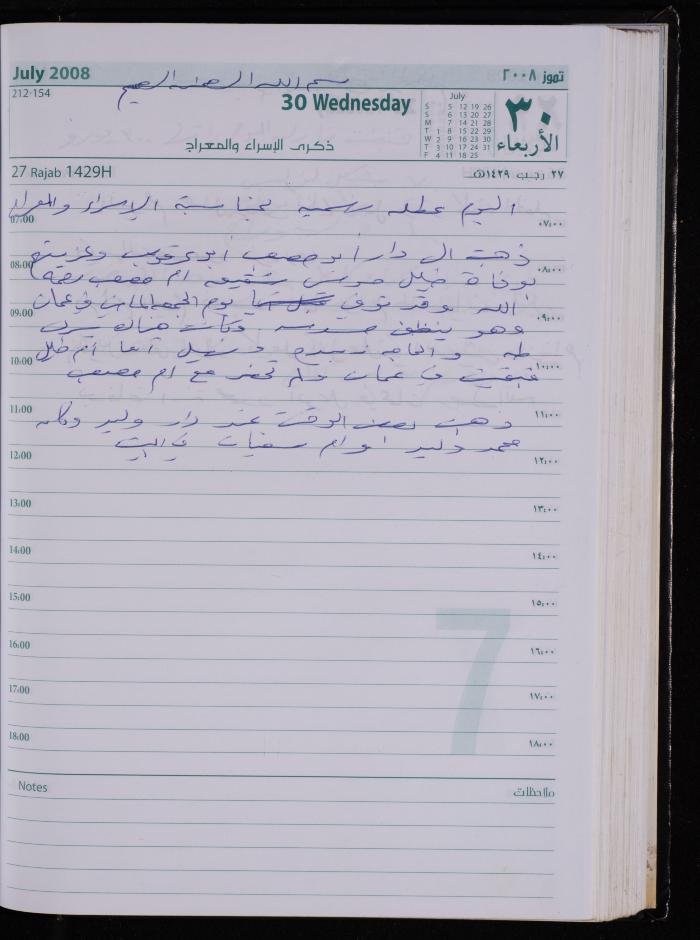 July 2008
تموز ٢٠٠٨
بسم الله الرحمن الرحيم
212-154
30 Wednesday
July
S 5 12 19 26
S 6 13 20 27
M 7 14 21 28
T 1 8 15 22 29
W 2 9 16 23 30
T 3 10 17 24 31
F 4 11 18 25
٣٠
الأربعاء
ذكرى الإسراء والمعراج
27 Rajab 1429H
٢٧ رجب ١٤٢٩هـ
اليوم عطله رسميه بمناسبة الإسراء والمعراج
07:00 ٠٧:٠٠
ذهبت الى دار ابو مصعب ابو عرقوب وعزيتهم
08:00 ٠٨:٠٠
بوفاة خليل شقيق ام مصعب رحمه
الله وقد توفى يوم الجمعه الماضي في عمان
09:00 ٠٩:٠٠
وهو ينظف وكانت هناك
طه والحاجه و اما ام خليل
10:00 ١٠:٠٠
فبقيت في عمان ولم تحضر مع ام مصعب
11:00 ١١:٠٠
وذهبت بعض الوقت عند دار وليد وكان
محمد وليد وام سفيان في البيت
12:00 ١٢:٠٠
13:00 ١٣:٠٠
14:00 ١٤:٠٠
15:00 ١٥:٠٠
16:00 ١٦:٠٠
17:00 ١٧:٠٠
18:00 ١٨:٠٠
7
Notes
ملاحظات